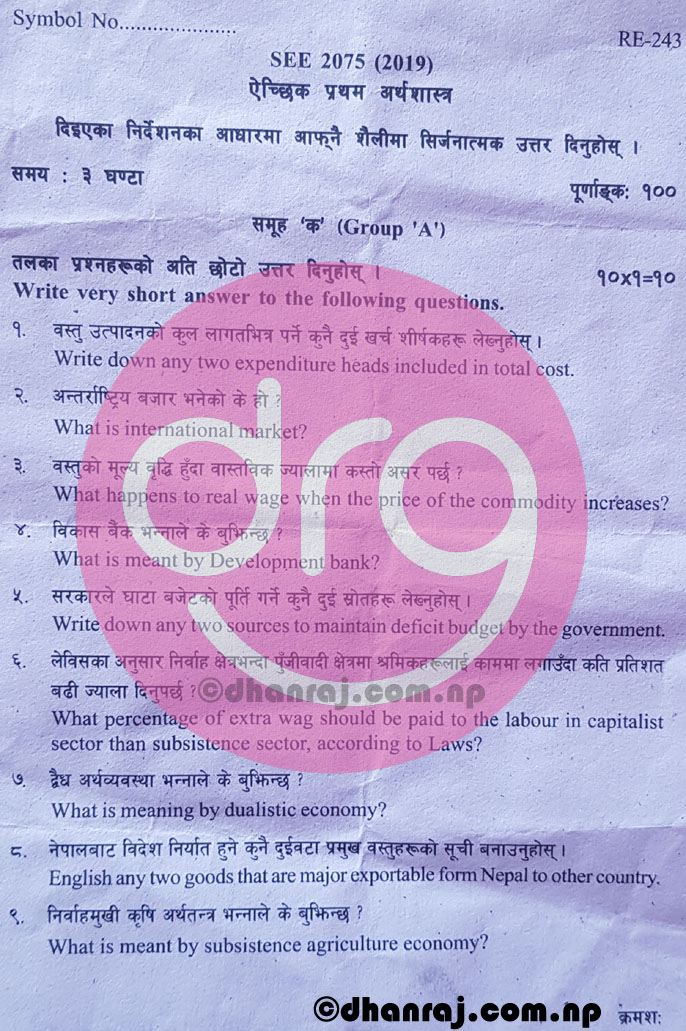 Symbol No.....................
RE-243
SEE 2075 (2019)
ऐच्छिक प्रथम अर्थशास्त्र
दिइएका निर्देशनका आधारमा आफ्नै शैलीमा सिर्जनात्मक उत्तर दिनुहोस् ।
समय : ३ घण्टा
पूर्णाङ्क: १००
समूह 'क' (Group 'A')
तलका प्रश्नहरूको अति छोटो उत्तर दिनुहोस् ।
१०x१=१०
Write very short answer to the following questions.
१. वस्तु उत्पादनको कुल लागतभित्र पर्ने कुनै दुई खर्च शीर्षकहरू लेख्नुहोस् ।
Write down any two expenditure heads included in total cost.
२. अन्तर्राष्ट्रिय बजार भनेको के हो ?
What is international market?
३. वस्तुको मूल्य वृद्धि हुँदा वास्तविक ज्यालामा कस्तो असर पर्छ ?
What happens to real wage when the price of the commodity increases?
४. विकास बैंक भन्नाले के बुझिन्छ ?
What is meant by Development bank?
५. सरकारले घाटा बजेटको पूर्ति गर्ने कुनै दुई स्रोतहरू लेख्नुहोस् ।
Write down any two sources to maintain deficit budget by the government.
६. लेविसका अनुसार निर्वाह क्षेत्रभन्दा पुँजीवादी क्षेत्रमा श्रमिकहरूलाई काममा लगाउँदा कति प्रतिशत
बढी ज्याला दिनुपर्छ ?
©dhanraj.com.np
What percentage of extra wag should be paid to the labour in capitalist
sector than subsistence sector, according to Laws?
७. द्वैध अर्थव्यवस्था भन्नाले के बुझिन्छ ?
What is meaning by dualistic economy?
८. नेपालबाट विदेश निर्यात हुने कुनै दुईवटा प्रमुख वस्तुहरूको सूची बनाउनुहोस् ।
English any two goods that are major exportable form Nepal to other country.
९. निर्वाहमुखी कृषि अर्थतन्त्र भन्नाले के बुझिन्छ ?
What is meant by subsistence agriculture economy?
©dhanraj.com.np
क्रमश:
drg